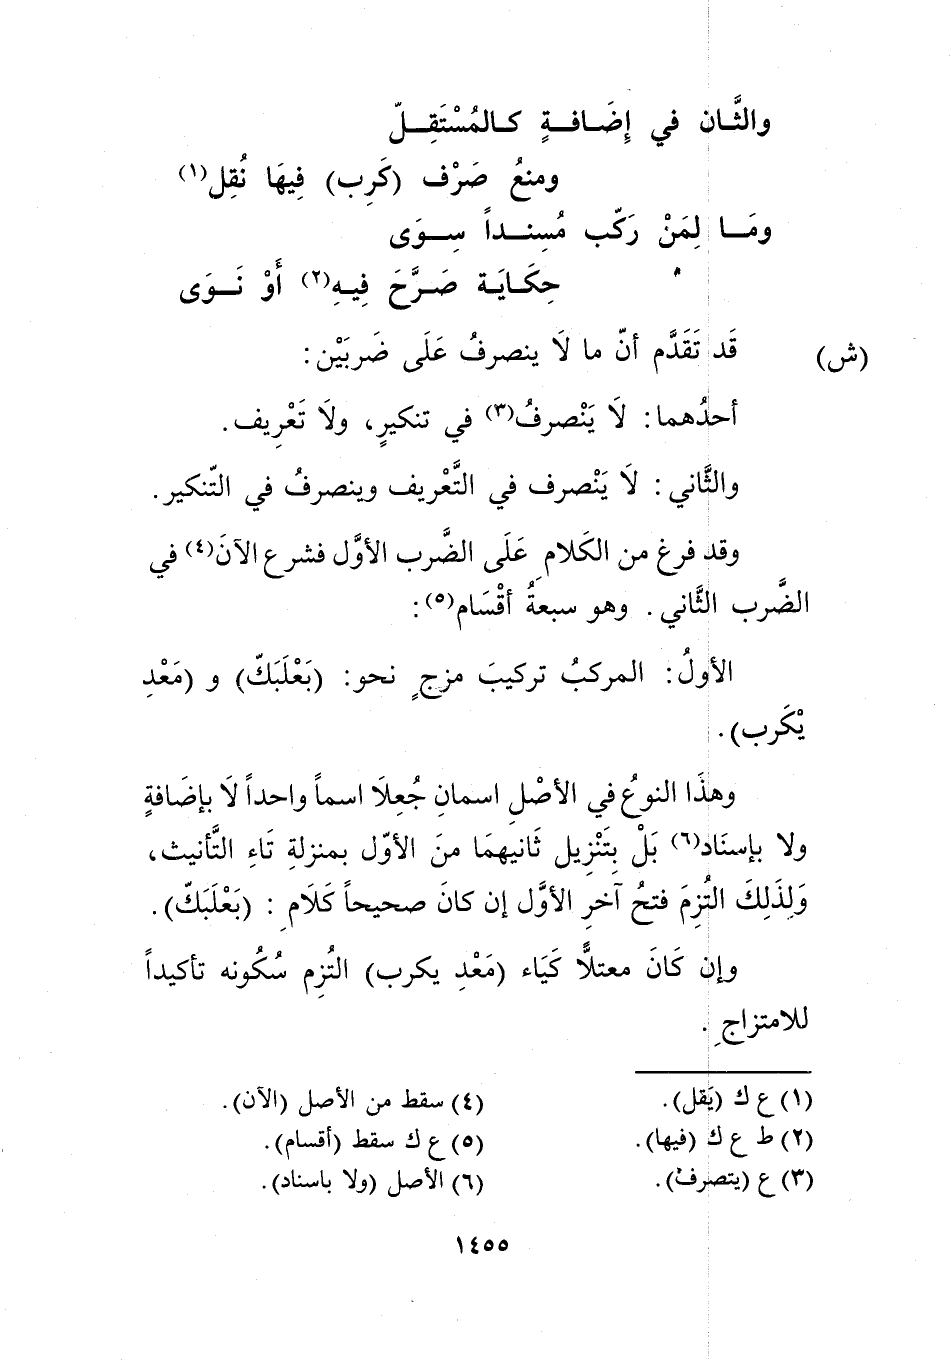 والثَّـان في إِضَـافـةٍ كـالمُسْتَقِـلّ
ومنعُ صَرْف (كَرِب) فِيهَا نُقِل(١)
ومَـا لِمَنْ رَكّب مُسِنـداً سِـوَى
حِكَـايَـة صَـرَّحَ فِيـهِ(٢) أَوْ نَـوَى
(ش) قَد تَقَدَّم أنّ ما لَا ينصرفُ عَلَى ضَربَيْن:
أحدُهما: لَا يَنْصرفُ(٣) في تنكيرٍ، ولَا تَعْرِيف.
والثَّاني: لَا يَنْصرف في التَّعْريف وينصرفُ في التّنكير.
وقد فرغ من الكَلامِ عَلَى الضَّرب الأوَّل فشرع الآنَ(٤) في
الضَّرب الثَّاني. وهو سبعةُ أقْسَام(٥):
الأولُ: المركبُ تركيبَ مزجٍ نحو: (بَعْلَبَكّ) و (مَعْدِ
يْكَرب).
وهذَا النوعُ في الأصْلِ اسمانِ جُعِلَا اسماً واحداً لَا بإضَافةٍ
ولا بإسنَاد(٦) بَلْ بِتَنْزِيل ثَانيهمَا منَ الأوّل بمنزلةِ تَاءِ التَّأنيث،
وَلِذَلِكَ التُزِمَ فتحُ آخرِ الأوَّل إن كانَ صحيحاً كَلَامِ: (بَعْلَبَكّ).
وإن كَانَ معتلاًّ كَيَاء (مَعْدِ يكرب) التُزِم سُكُونه تأكيداً
للامتزاجِ.
(١) ع ك (يَقل).
(٢) ط ع ك (فيها).
(٣) ع (يتصرف).
(٤) سقط من الأصل (الآن).
(٥) ع ك سقط (أقسام).
(٦) الأصل (ولا باسناد).
١٤٥٥